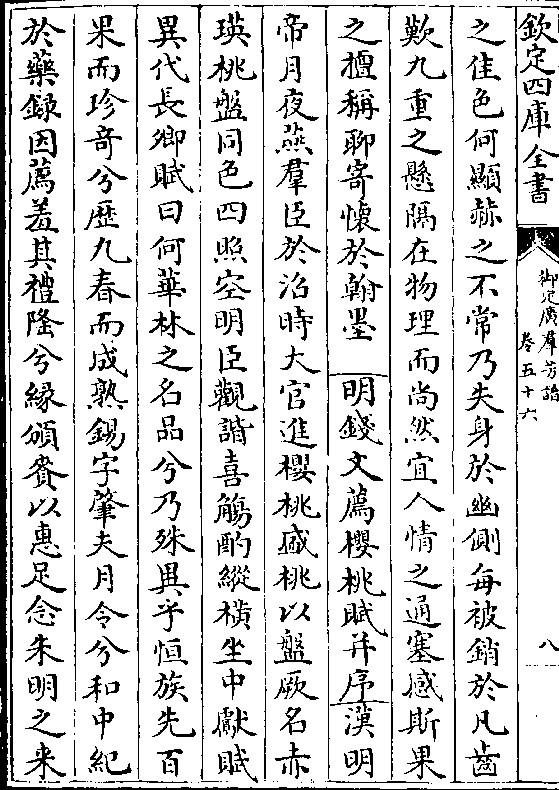 欽定四庫全書
御定廣羣芳譜
卷五十六
八
之佳色何顯赫之不常乃失身於幽側每被銷於凡齒
歎九重之懸隔在物理而尚然宜人情之通塞感斯果
之擅稱聊寄懷於翰墨 明錢文薦櫻桃賦并序漢明
帝月夜燕羣臣於治時大官進櫻桃盛桃以盤厥名赤
瑛桃盤同色四照空明臣觀諧喜觴酌縱橫坐中獻賦
異代長卿賦曰何華林之名品兮乃殊異乎恒族先百
果而珍奇兮歴九春而成熟錫字肇夫月令兮和中紀
於藥録因薦羞其禮隆兮縁頒賚以惠足念朱明之来